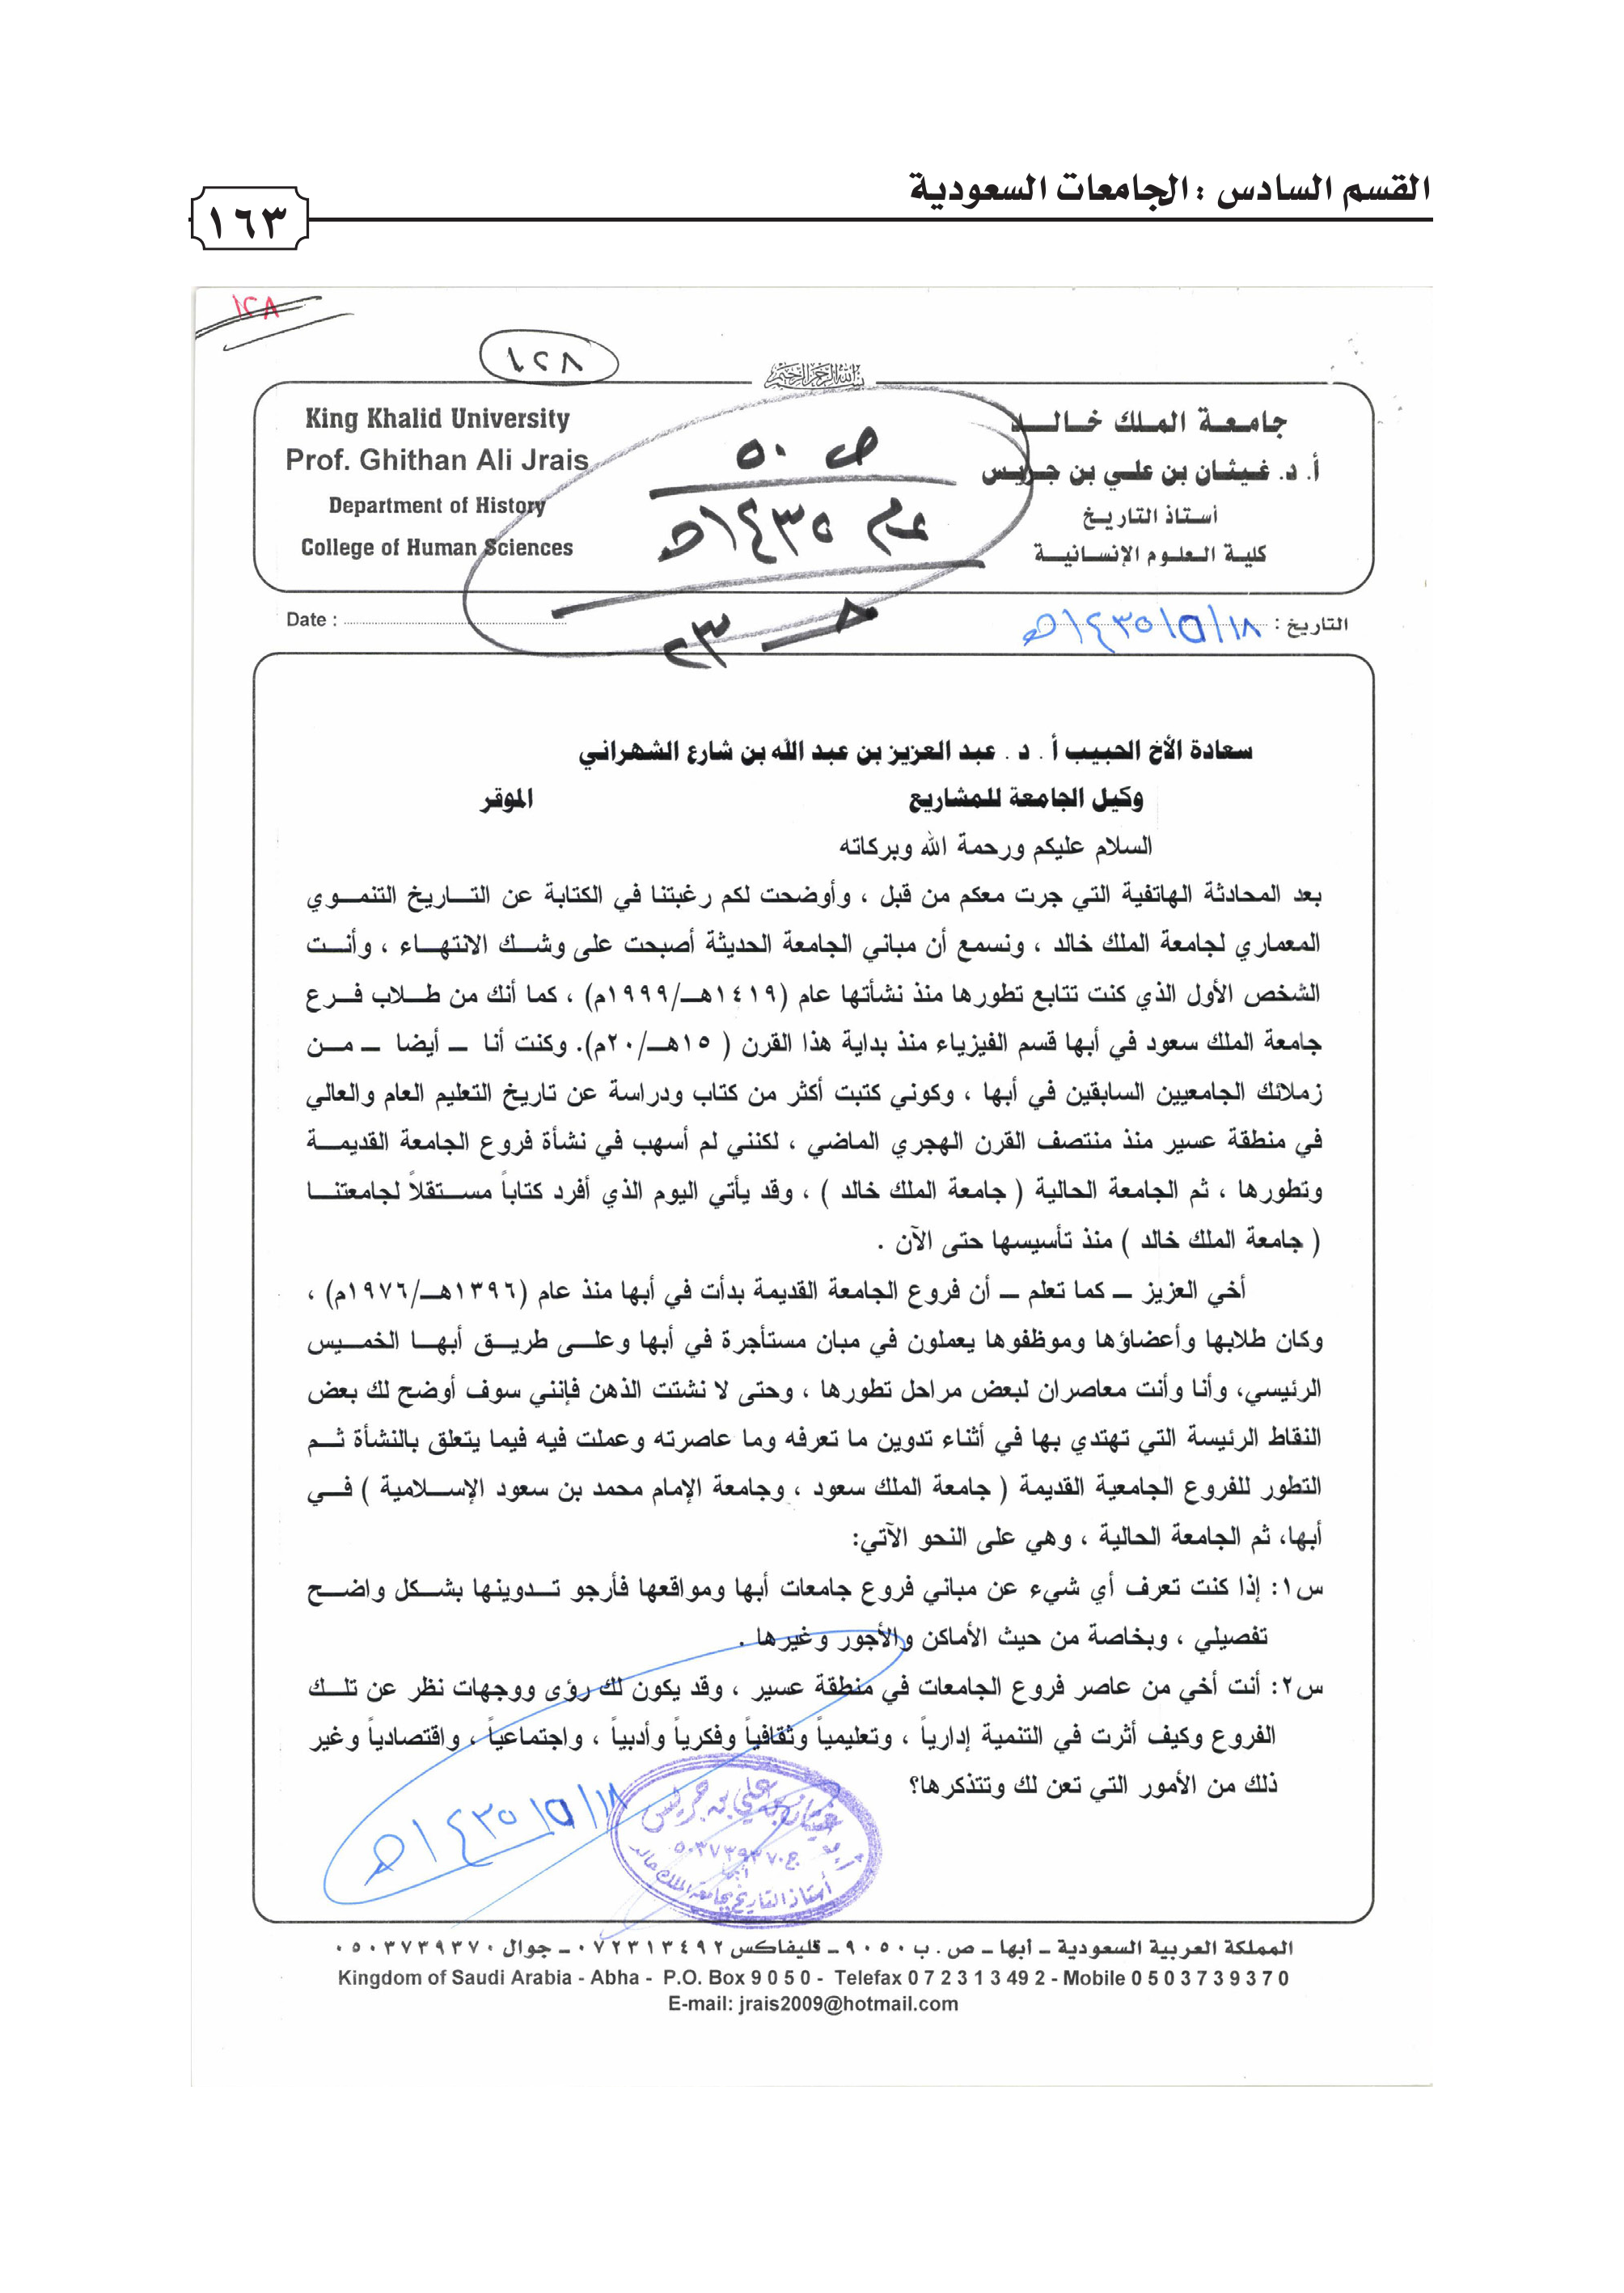 القسم السادس : الجامعات السعودية
١٦٣
١٢٨
١٢٨
بسم الله الرحمن الرحيم
جامعة الملك خالد
أ. د. غيثان بن علي بن جريس
أستاذ التاريخ
كلية العلوم الإنسانية
King Khalid University
Prof. Ghithan Ali Jrais
Department of History
College of Human Sciences
ص ٥٠
عام ١٤٣٥هـ
٢٣
التاريخ : ١٨/٥/١٤٣٥هـ
Date :
سعادة الأخ الحبيب أ . د . عبد العزيز بن عبد الله بن شارع الشهراني
وكيل الجامعة للمشاريع الموقر
السلام عليكم ورحمة الله وبركاته
بعد المحادثة الهاتفية التي جرت معكم من قبل ، وأوضحت لكم رغبتنا في الكتابة عن التاريخ التنموي
المعماري لجامعة الملك خالد ، ونسمع أن مباني الجامعة الحديثة أصبحت على وشك الانتهاء ، وأنت
الشخص الأول الذي كنت تتابع تطورها منذ نشأتها عام (١٤١٩هـ/١٩٩٩م) ، كما أنك من طلاب فرع
جامعة الملك سعود في أبها قسم الفيزياء منذ بداية هذا القرن ( ١٥هـ/٢٠م). وكنت أنا – أيضا – من
زملائك الجامعيين السابقين في أبها ، وكوني كتبت أكثر من كتاب ودراسة عن تاريخ التعليم العام والعالي
في منطقة عسير منذ منتصف القرن الهجري الماضي ، لكنني لم أسهب في نشأة فروع الجامعة القديمة
وتطورها ، ثم الجامعة الحالية ( جامعة الملك خالد ) ، وقد يأتي اليوم الذي أفرد كتاباً مستقلاً لجامعتنا
( جامعة الملك خالد ) منذ تأسيسها حتى الآن .
أخي العزيز – كما تعلم – أن فروع الجامعة القديمة بدأت في أبها منذ عام (١٣٩٦هـ/١٩٧٦م) ،
وكان طلابها وأعضاؤها وموظفوها يعملون في مبان مستأجرة في أبها وعلى طريق أبها الخميس
الرئيسي، وأنا وأنت معاصران لبعض مراحل تطورها ، وحتى لا نشتت الذهن فإنني سوف أوضح لك بعض
النقاط الرئيسة التي تهتدي بها في أثناء تدوين ما تعرفه وما عاصرته وعملت فيه فيما يتعلق بالنشأة ثم
التطور للفروع الجامعية القديمة ( جامعة الملك سعود ، وجامعة الإمام محمد بن سعود الإسلامية ) في
أبها، ثم الجامعة الحالية ، وهي على النحو الآتي:
س١: إذا كنت تعرف أي شيء عن مباني فروع جامعات أبها ومواقعها فأرجو تدوينها بشكل واضح
تفصيلي ، وبخاصة من حيث الأماكن والأجور وغيرها .
س٢: أنت أخي من عاصر فروع الجامعات في منطقة عسير ، وقد يكون لك رؤى ووجهات نظر عن تلك
الفروع وكيف أثرت في التنمية إدارياً ، وتعليمياً وثقافياً وفكرياً وأدبياً ، واجتماعياً ، واقتصادياً وغير
ذلك من الأمور التي تعن لك وتتذكرها؟
١٨/٥/١٤٣٥هـ
غيثان بن علي بن جريس
ج ٠٥٠٣٧٣٩٣٧٠
أبها
أستاذ التاريخ بجامعة الملك خالد
المملكة العربية السعودية – أبها – ص . ب ٩٠٥٠ – تليفاكس ٠٧٢٣١٣٤٩٢ – جوال ٠٥٠٣٧٣٩٣٧٠
Kingdom of Saudi Arabia - Abha - P.O. Box 9 0 5 0 - Telefax 0 7 2 3 1 3 49 2 - Mobile 0 5 0 3 7 3 9 3 7 0
E-mail: jrais2009@hotmail.com